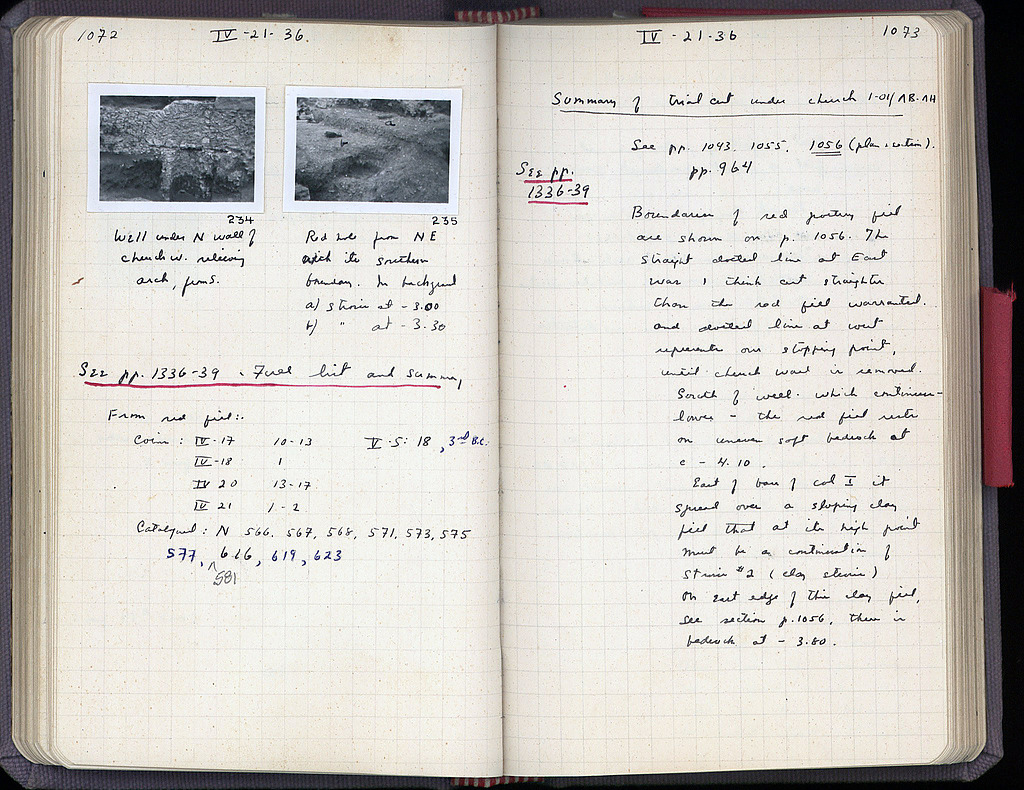 1072
IV-21-36.
234
Wall under N wall of
church w. relieving
arch, from S.
235
Red hole from NE
with its southern
boundary. In background
a) stosis at -3.00
b) " at -3.30
See pp. 1336-39 . Full list and summary
From red fill:
Coins: IV-17 10-13 V-5: 18, 3rd B.C.
IV-18 1
IV 20 13-17
IV 21 1-2
Catalogued: N 566, 567, 568, 571, 573, 575
577, 616, 619, 623
581
IV-21-36
1073
Summary of trial cut under church 1-01/ΛB-ΛH
See pp. 1043, 1055, 1056 (plan + section).
pp. 964
See pp.
1336-39
Boundaries of red pottery fill
are shown on p. 1056. The
straight dotted line at East
was I think cut straighter
than the red fill warranted.
and dotted line at west
represents our stopping point,
until church wall is removed.
South of wall which continues
lower - the red fill rests
on uneven soft bedrock at
c - 4.10.
East of base of col I it
spread over a sloping clay
fill that at its high point
must be a continuation of
#2 (clay
On East edge of this clay fill,
see section p. 1056, there is
bedrock at - 3.80.